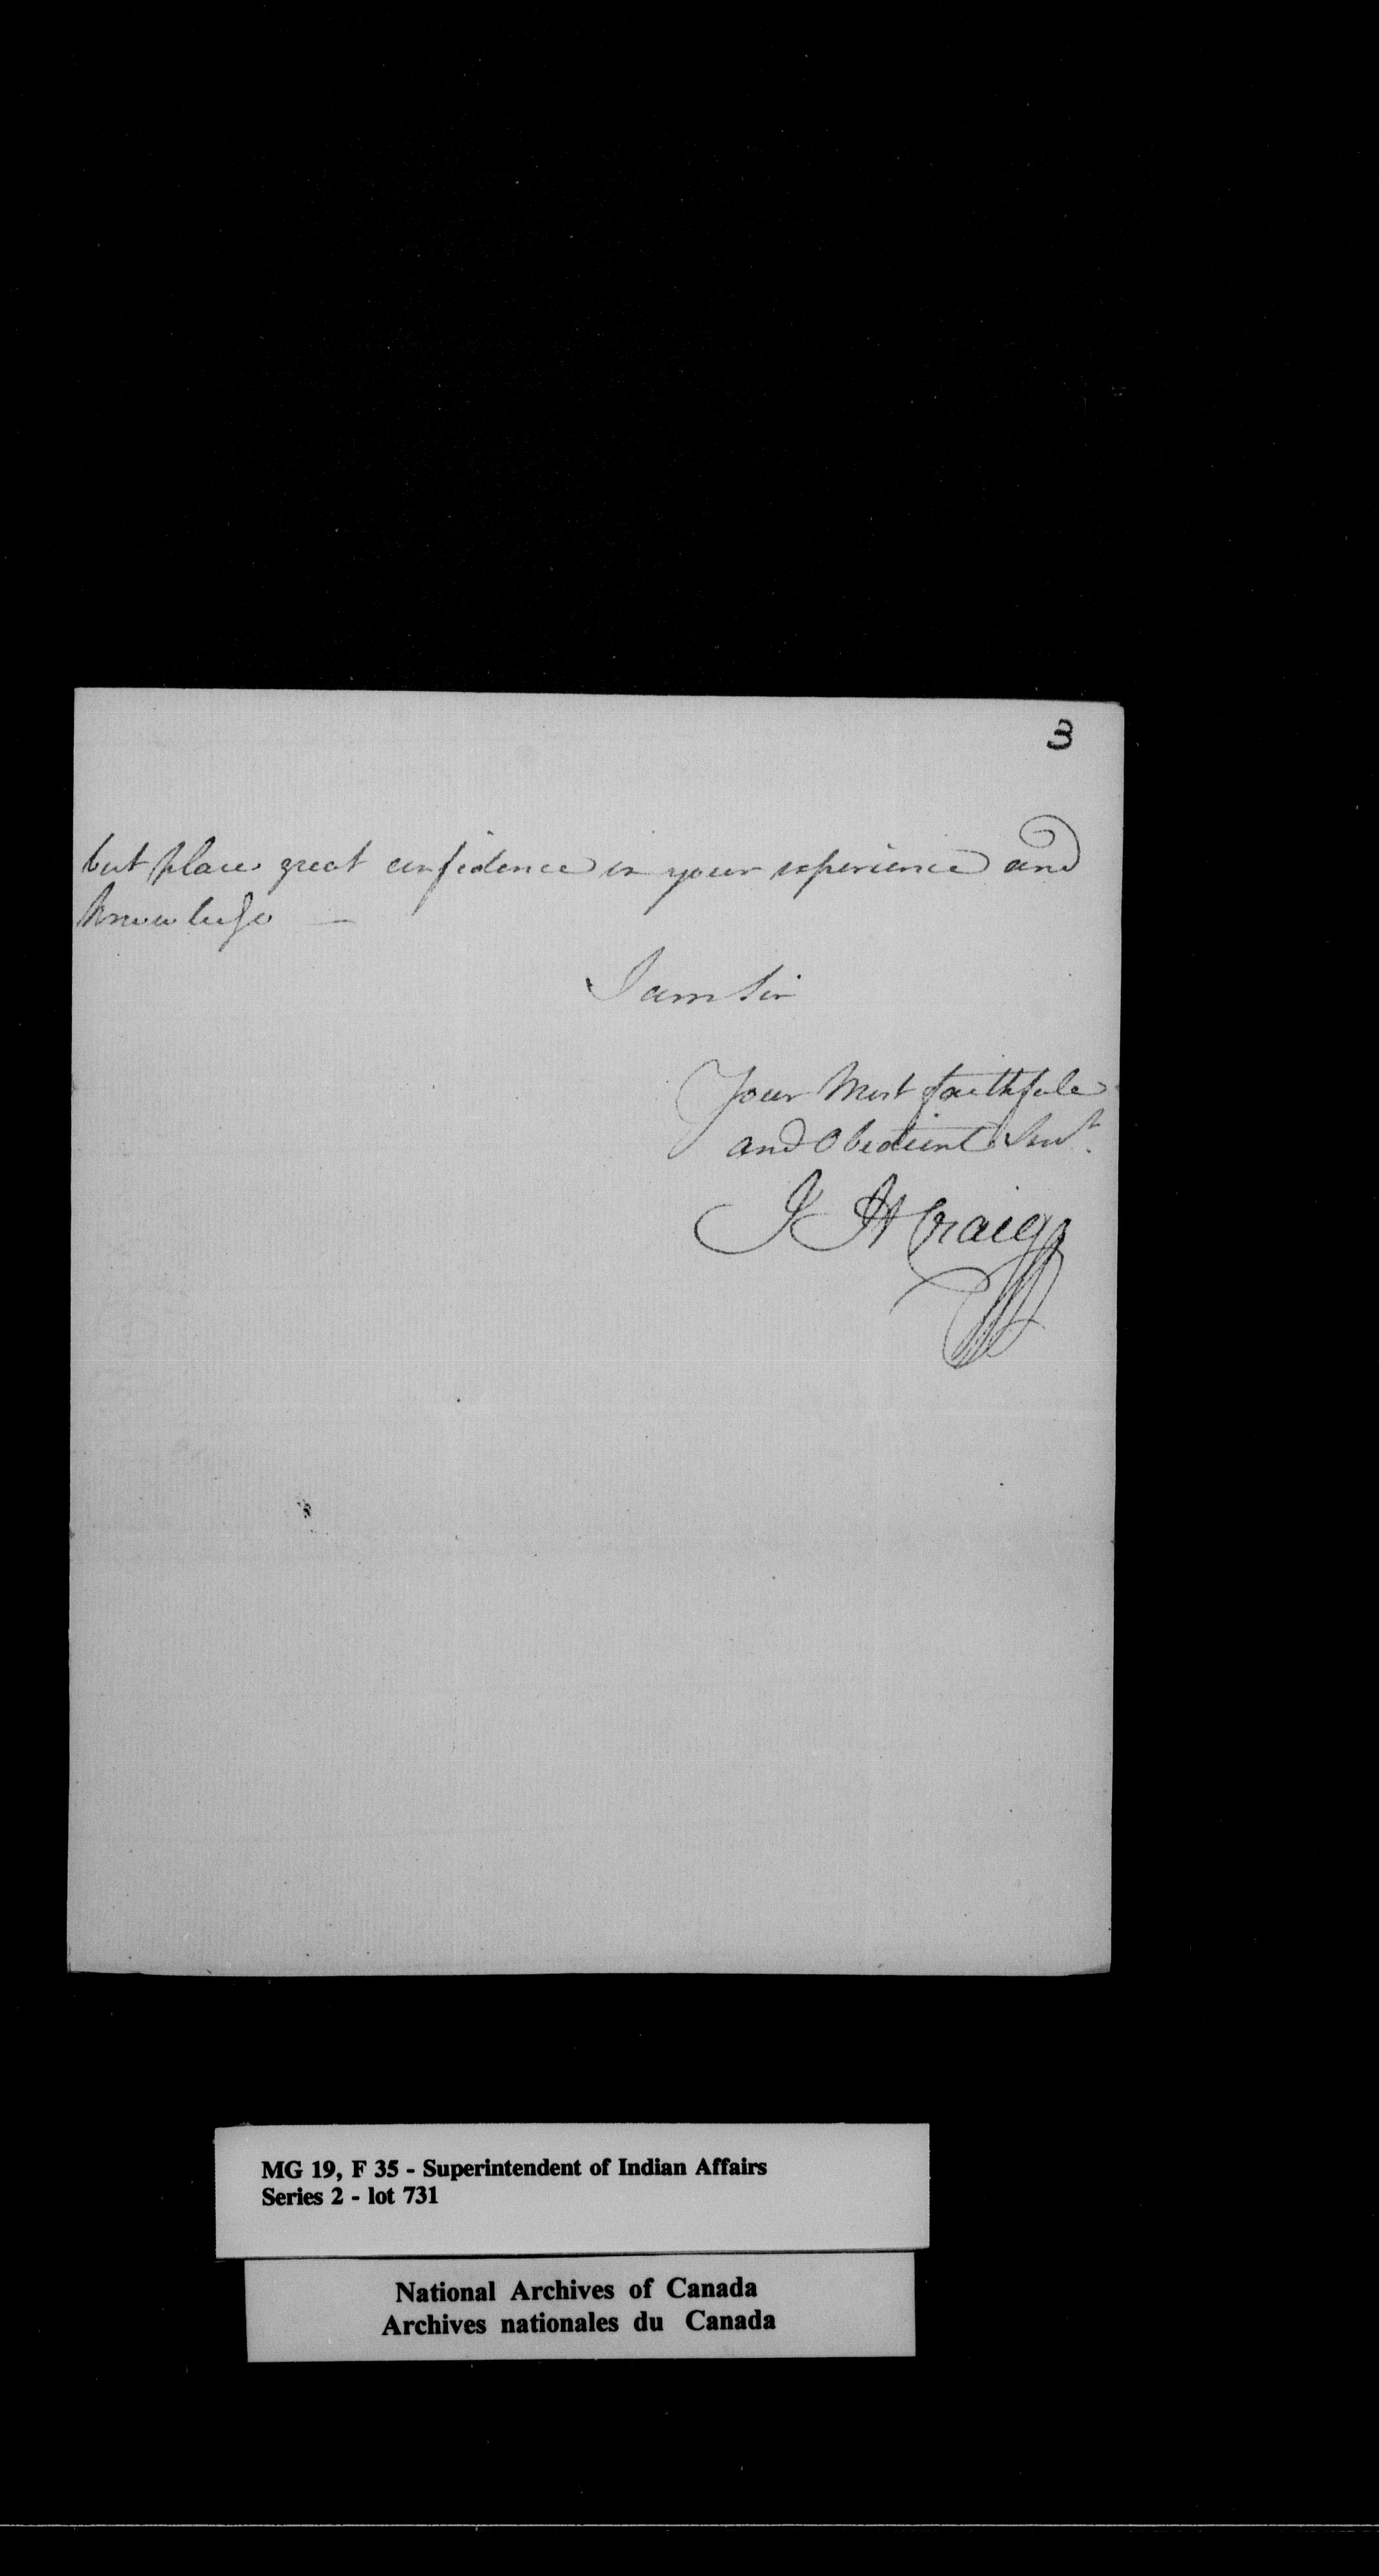 3
but place great confidence in your experience and
knowledge —
I am Sir
Your Most faithful
and Obedient Servt.
J H Craig
MG 19, F 35 - Superintendent of Indian Affairs
Series 2 - lot 731
National Archives of Canada
Archives nationales du Canada